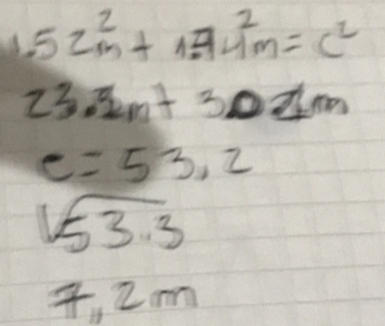 1.52m² + 1.74m² = c²
23.2m + 30.2m
c = 53,2
√53.3
7,2m